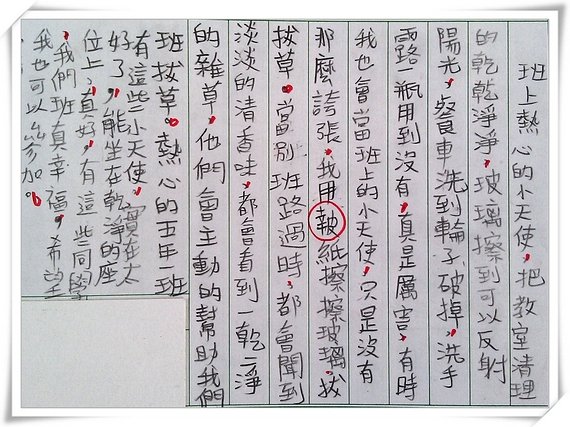 班上熱心的小天使，把教室清理
的乾乾淨淨，玻璃擦到可以反射
陽光，餐車洗到輪子破掉，洗手
露一瓶用到沒有，真是厲害，有時
我也會當班上的小天使，只是沒有
那麼誇張，我用報紙擦擦玻璃，拔
拔草。當別班路過時，都會聞到
淡淡的清香味，都會看到一乾二淨
的雜草，他們會主動的幫助我們
班拔草。熱心的五年一班
有這些小天使，實在太
好了，能坐在乾淨的座
位上，真好，有這些同學
，我們班真幸福，希望
我也可以參加。